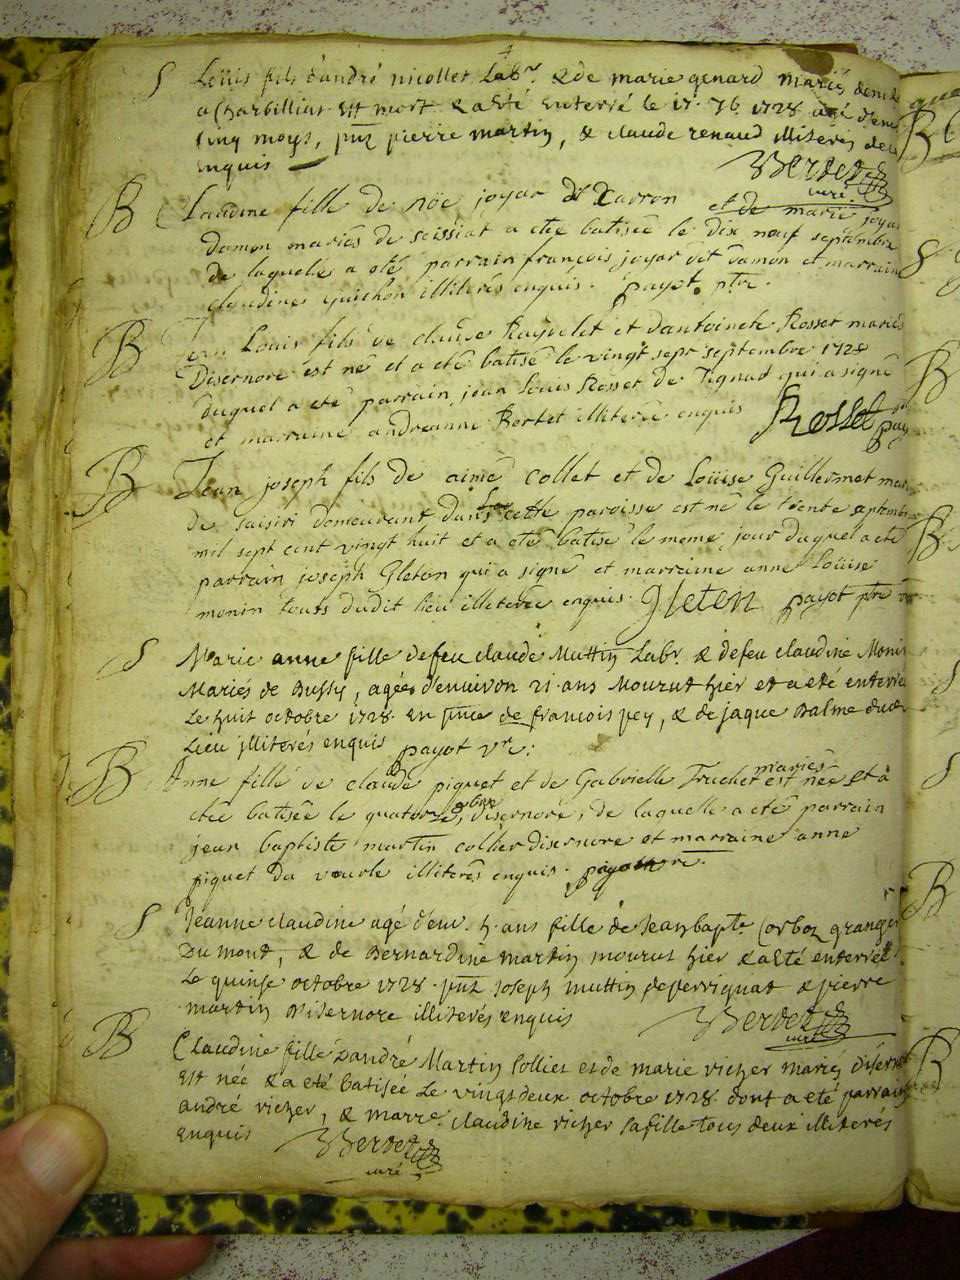 4
S Loüis fils d'andré nicollet Labr. & de marie genard mariés
a Charbillias Est mort & a Eté Enterré le 17. 7b. 1728
Cinq moys, pnz pierre martin, & claude renaud illiterés
Enquis Verdet
curé.
B Claudine fille de noë joyar et de marie joyar
damon mariés de scissiat a eté batisée le dix neuf septembre
de laquelle a eté parrain françois joyar dit damon et marraine
claudine guichon illiterés enquis. payot ptre.
B Jean Louis fils de claude Raquelet et d'antoinete Rosset mariés
Disernore est né et a eté batisé le vingt sept septembre 1728
duquel a eté parrain jean Louis Rosset de Tignat qui a signé
et marraine andreanne Bertet illiterée enquis Rosset
B Jean joseph fils de aimé Collet et de Loüise Guillermet
de saisiri demeurant dans cette paroisse est né le trente septembre
mil sept cent vingt huit et a eté batisé le meme jour duquel a eté
parrain joseph Gleton qui a signé et marraine anne Loüise
monin touts dudit lieu illiterée enquis. Gleton payot ptre
S Marie anne fille defeu claude Muttin Labr. & defeu claudine Monin
Mariés de Bussy, agée d'environ 21 ans Mourut hier et a eté enterrée
Le huit octobre 1728. En pnce de francois pey, & de jaque Balme dudt
Lieu jlliterés enquis payot vre:
B Anne fille de claude piquet et de Gabrielle Truchet mariés est née et a
etée batisée le quatorze 8bre, disernore, de laquelle a eté parrain
jean baptiste martin collier disernore et marraine anne
piquet du vourle illiterés enquis. payot vre.
S Jeanne claudine agé d'env. 5 ans fille de Jean bapte. Corboz granger
Du mont, & de Bernardine martin mourut hier & a Eté enterrée
Le quinse octobre 1728. pnz Joseph muttin de perrignat & pierre
martin Disernore illiterés enquis Verdet
curé
B Claudine fille d'andré Martin Collier et de marie vicher mariés diserno
Est née & a eté batisée Le vingt deux octobre 1728 dont a eté parrain
andré vicher, & marre. claudine vicher sa fille tous deux illiterés
Enquis Verdet
curé